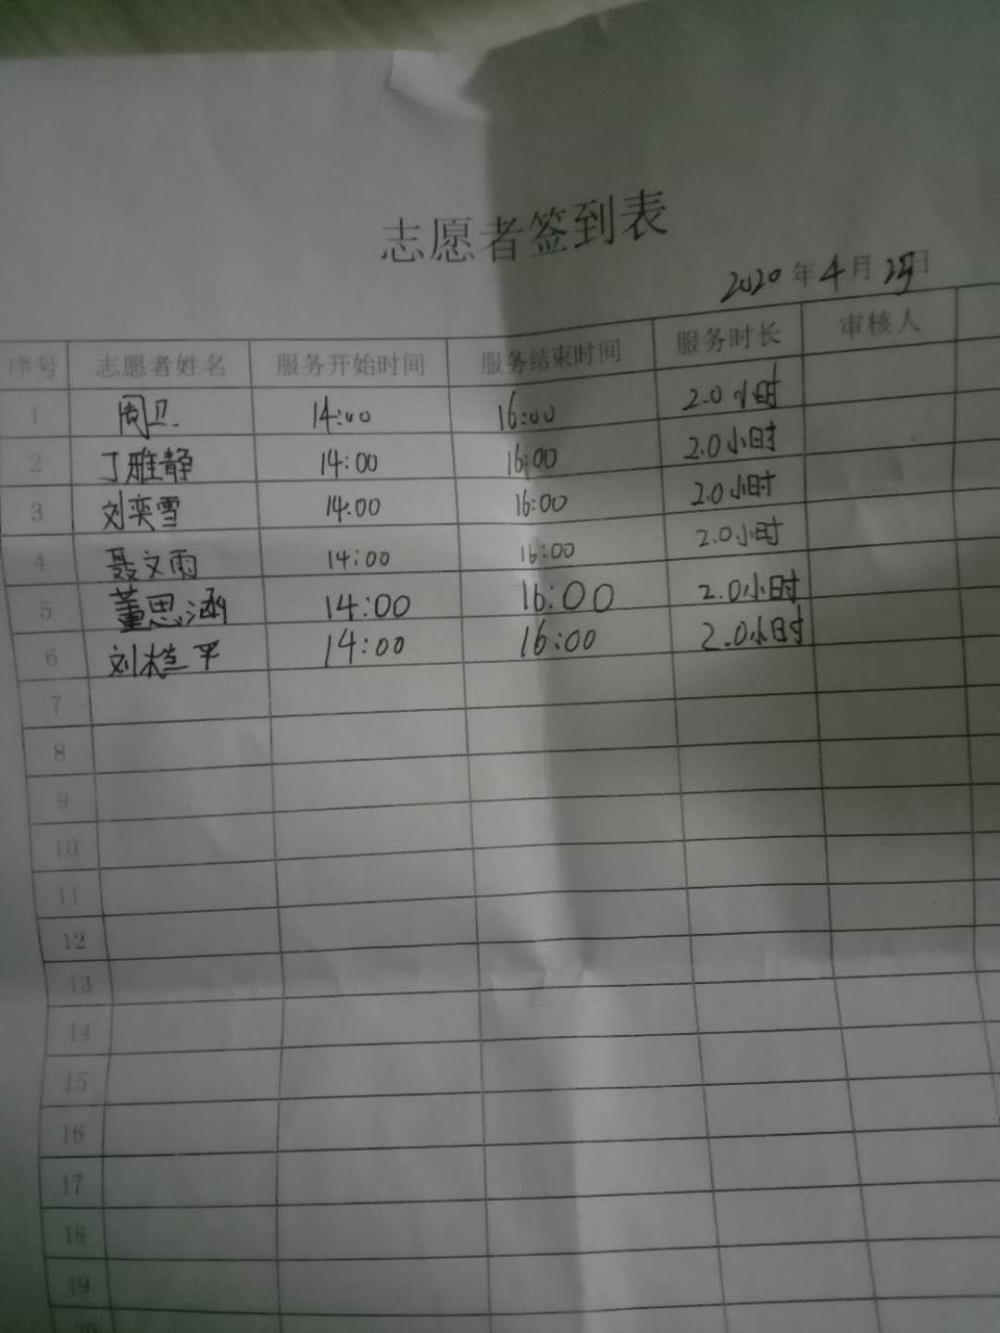 志愿者签到表
2020年4月25日
序号 志愿者姓名 服务开始时间 服务结束时间 服务时长 审核人
1 周卫 14:00 16:00 2.0小时
2 丁雅静 14:00 16:00 2.0小时
3 刘奕雪 14:00 16:00 2.0小时
4 聂文雨 14:00 16:00 2.0小时
5 董思涵 14:00 16:00 2.0小时
6 刘桂平 14:00 16:00 2.0小时
7
8
9
10
11
12
13
14
15
16
17
18
19
20